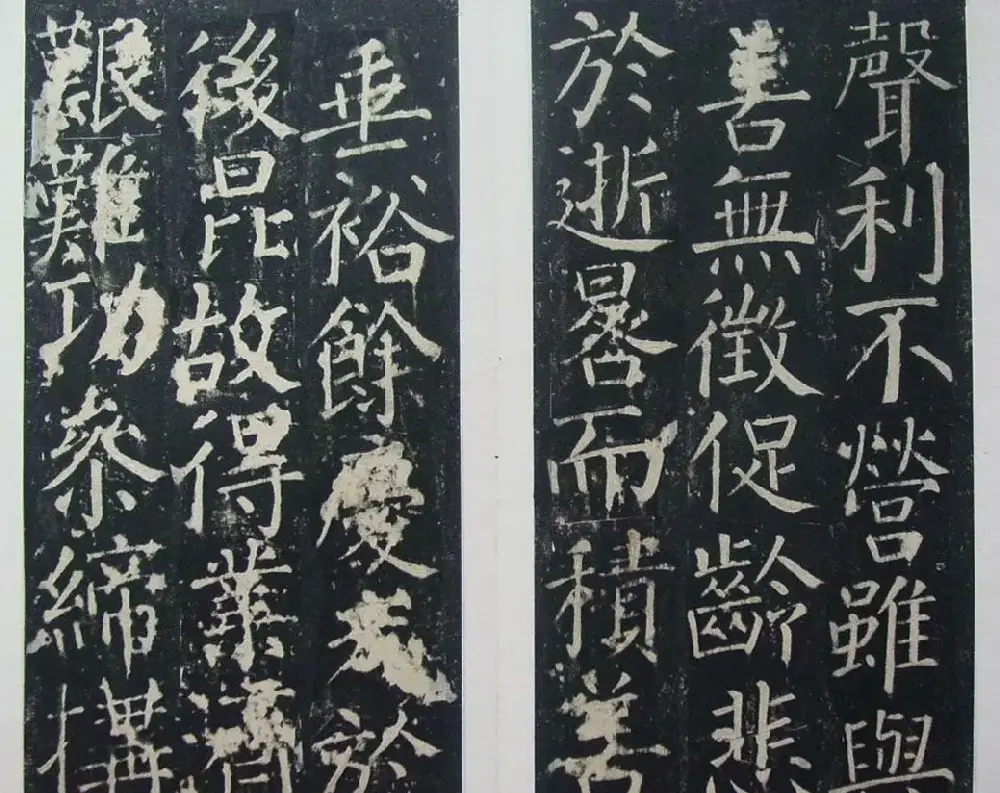 聲利不營雖與
善無徵促齡悲
於逝晷而積善
垂裕餘慶於
後昆故得業濟
艱難功參締構